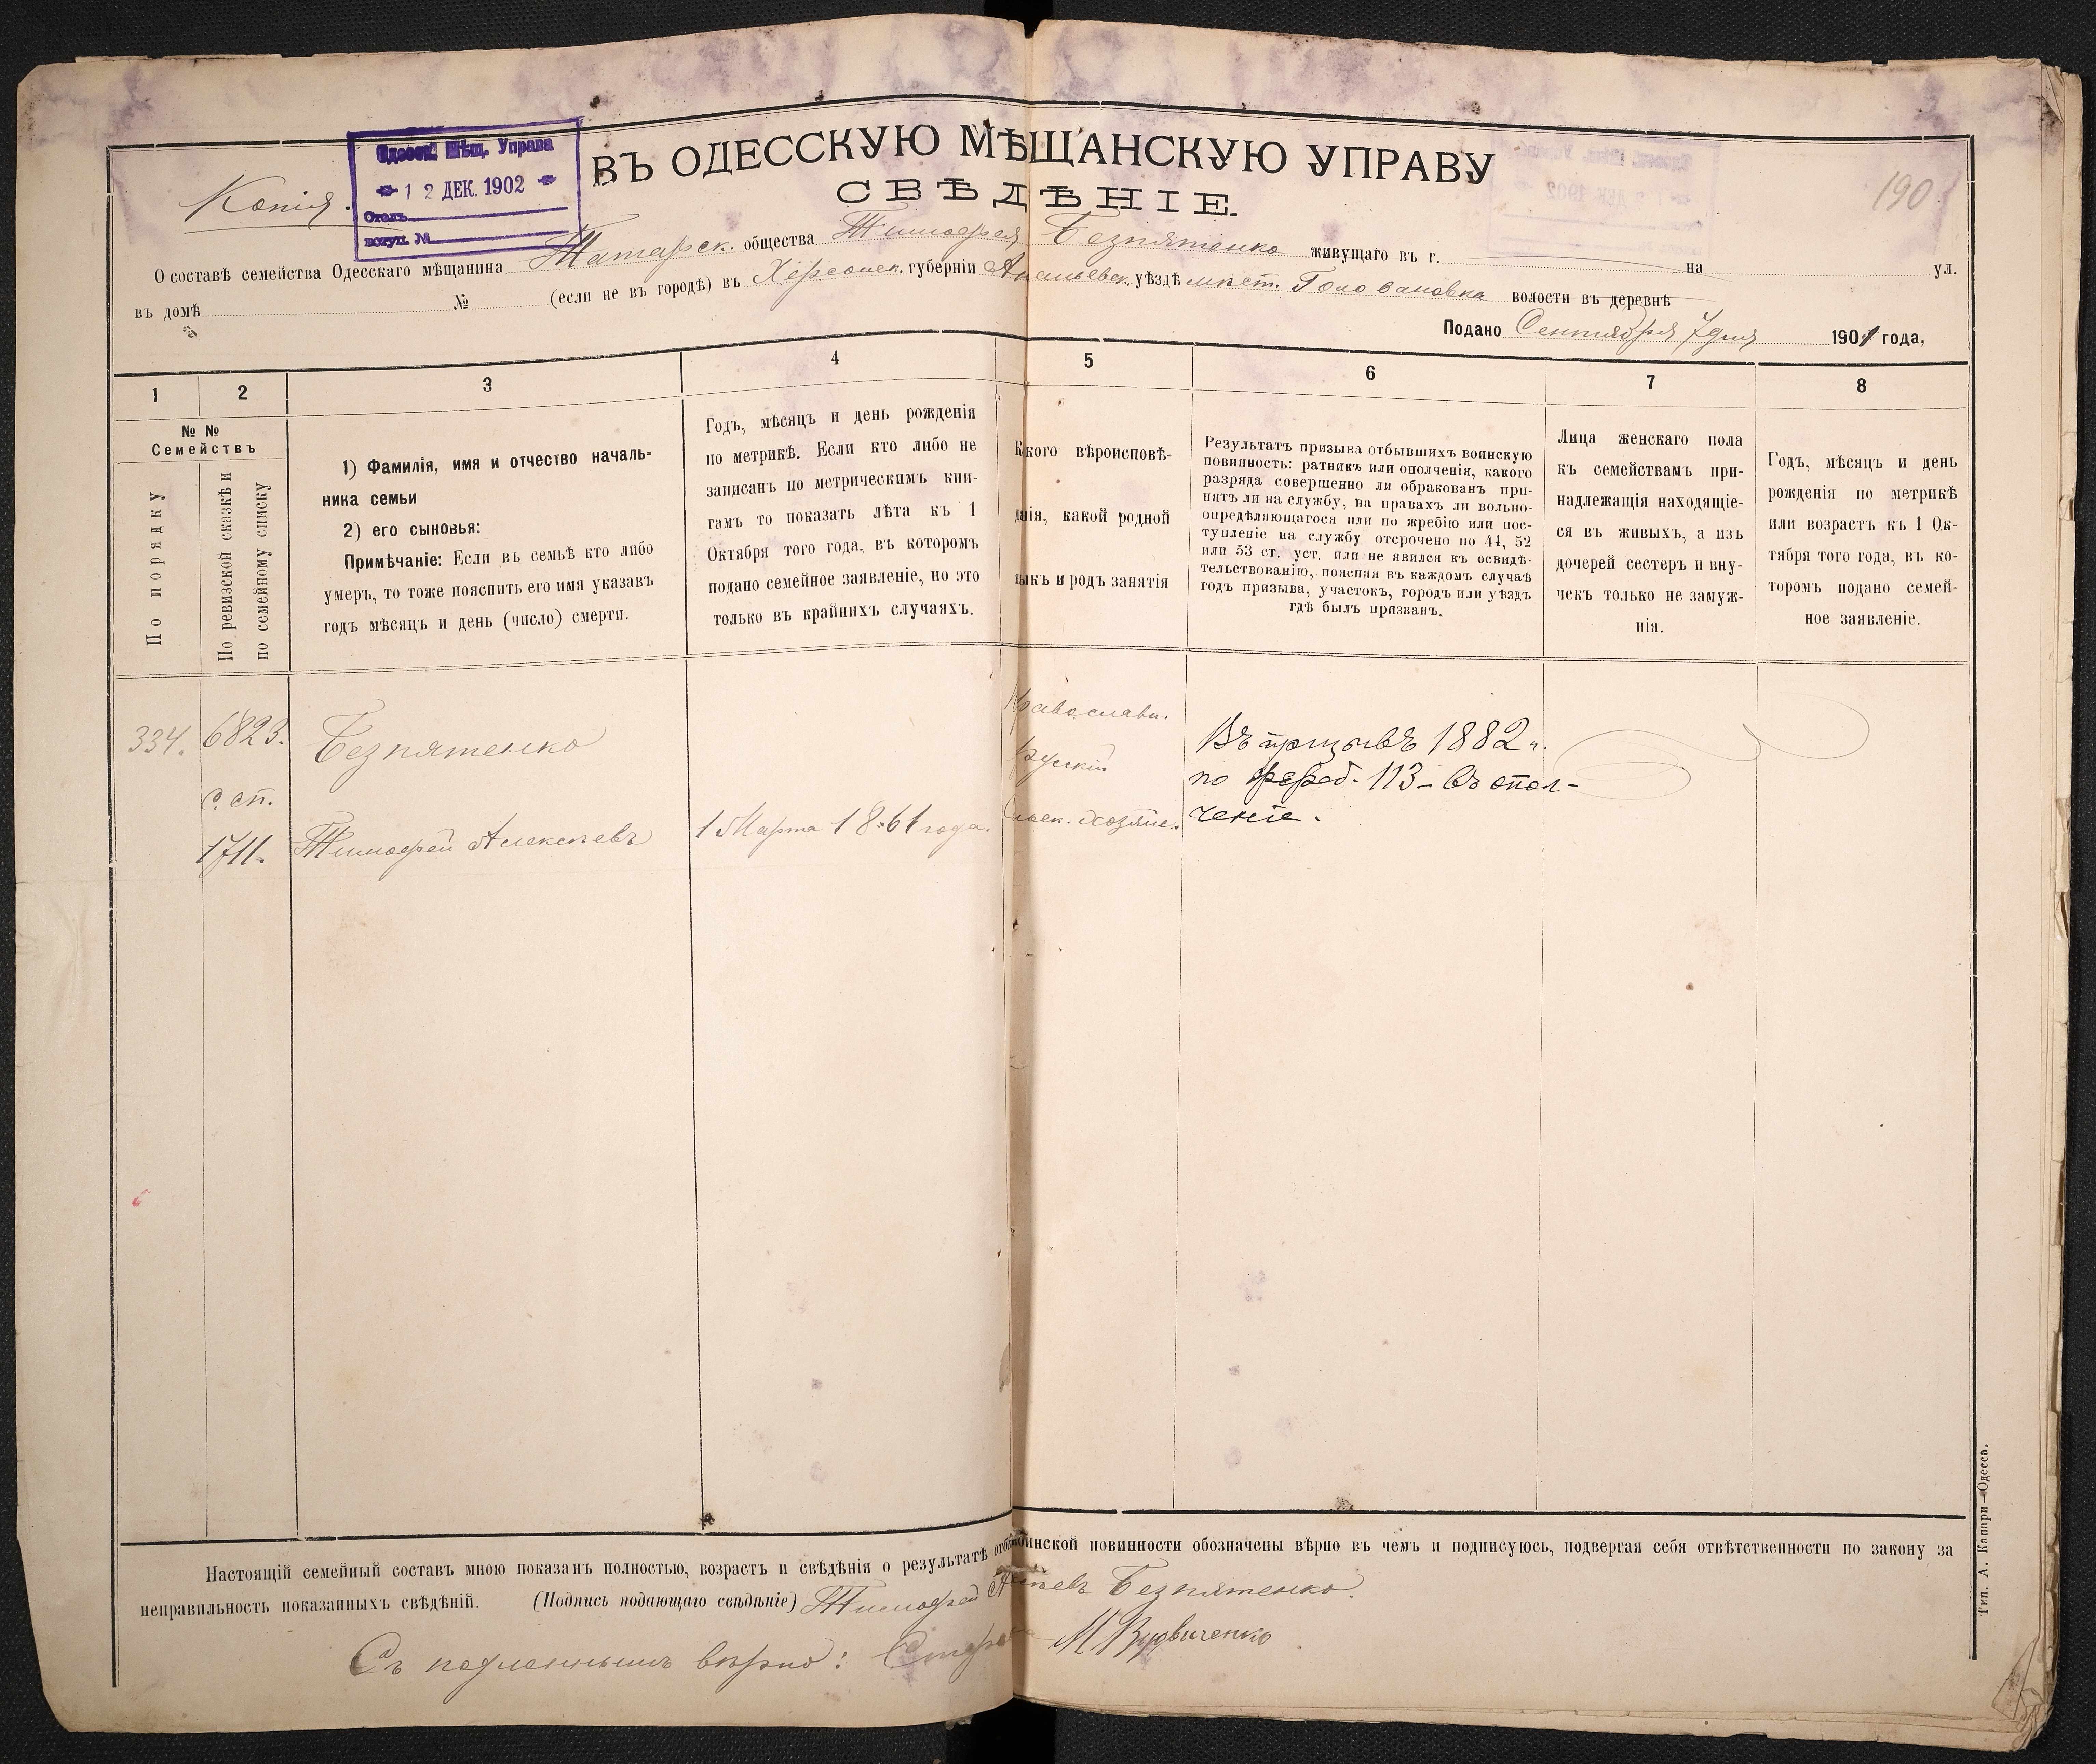 Копія.
Одесск. Мѣщ. Управа
12 ДЕК. 1902
Столъ
вступ. №
190
ВЪ ОДЕССКУЮ МѢЩАНСКУЮ УПРАВУ
СВѢДѢНІЕ.
О составѣ семейства Одесскаго мѣщанина Татарск. общества Тимофея Безпятенко живущаго въ г. на ул.
въ домѣ № (если не въ городѣ) въ Херсонск. губерніи Ананьевск. уѣздѣ мѣст. Головановка волости въ деревнѣ
Подано Сентября 7 дня 1901 года,
1 2 3 4 5 6 7 8
№ №
Семействъ
По порядку
По ревизской сказкѣ и
по семейному списку
1) Фамилія, имя и отчество началь-
ника семьи
2) его сыновья:
Примѣчаніе: Если въ семьѣ кто либо
умеръ, то тоже пояснить его имя указавъ
годъ мѣсяцъ и день (число) смерти.
Годъ, мѣсяцъ и день рожденія
по метрикѣ. Если кто либо не
записанъ по метрическимъ кни-
гамъ то показать лѣта къ 1
Октября того года, въ которомъ
подано семейное заявленіе, но это
только въ крайнихъ случаяхъ.
Какого вѣроисповѣ-
данія, какой родной
языкъ и родъ занятія
Результатъ призыва отбывшихъ воинскую
повинность: ратникъ или ополченія, какого
разряда совершенно ли обракованъ при-
нятъ ли на службу, на правахъ ли вольно-
опредѣляющагося или по жребію или пос-
тупленіе на службу отсрочено по 44, 52
или 53 ст. уст. или не явился къ освидѣ-
тельствованію, поясняя въ каждомъ случаѣ
годъ призыва, участокъ, городъ или уѣздъ
гдѣ былъ призванъ.
Лица женскаго пола
къ семействамъ при-
надлежащія находящіе-
ся въ живыхъ, а изъ
дочерей сестеръ и вну-
чекъ только не замуж-
нія.
Годъ, мѣсяцъ и день
рожденія по метрикѣ
или возрастъ къ 1 Ок-
тября того года, въ ко-
торомъ подано семей-
ное заявленіе.
334. 6823. Безпятенко
с. сп.
1711. Тимофей Алексѣевъ 1 Марта 1861 года.
Православн.
Русскій
Сельск. хозяис.
Въ призывѣ 1882 г.
по жереб. 113 – въ опол-
ченіе.
Настоящій семейный составъ мною показанъ полностью, возрастъ и свѣдѣнія о результатѣ отбыт. воинской повинности обозначены вѣрно въ чемъ и подписуюсь, подвергая себя отвѣтственности по закону за
неправильность показанныхъ свѣдѣній. (Подпись подающаго свѣдѣніе) Тимофей Алексѣевъ Безпятенко.
Съ подленнымъ вѣрно: Староста
Тип. А. Капари—Одесса.